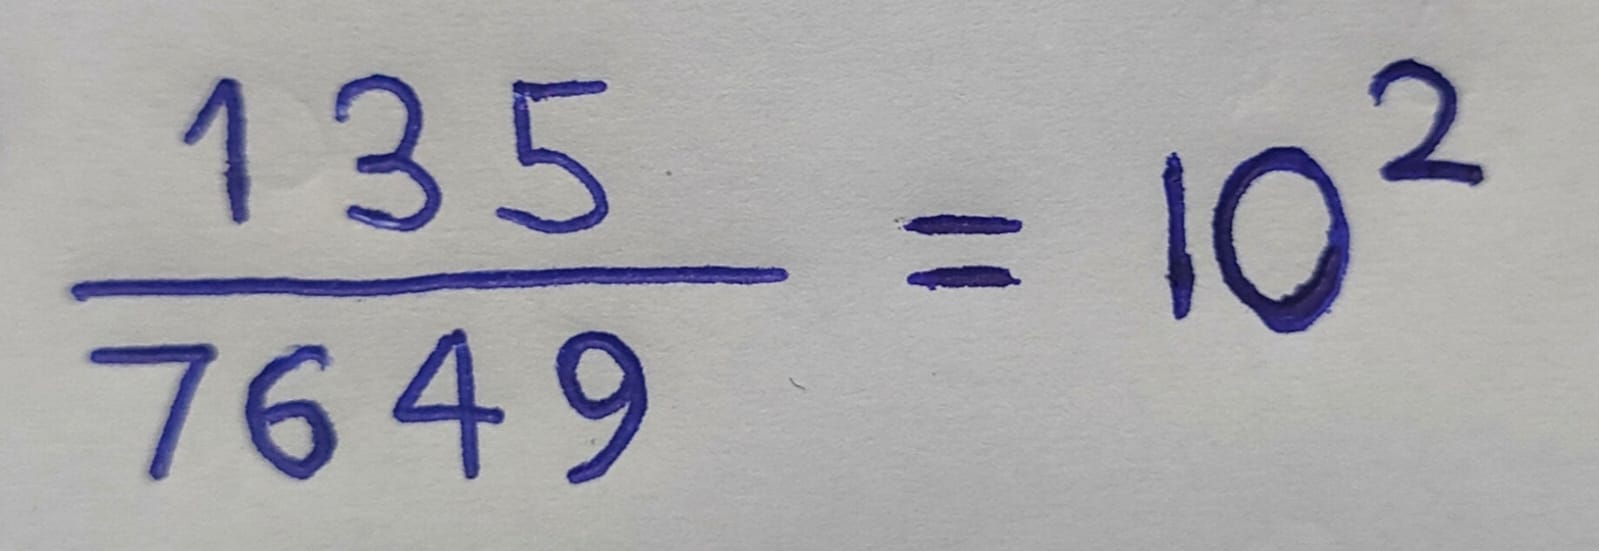 135
7649
= 10²